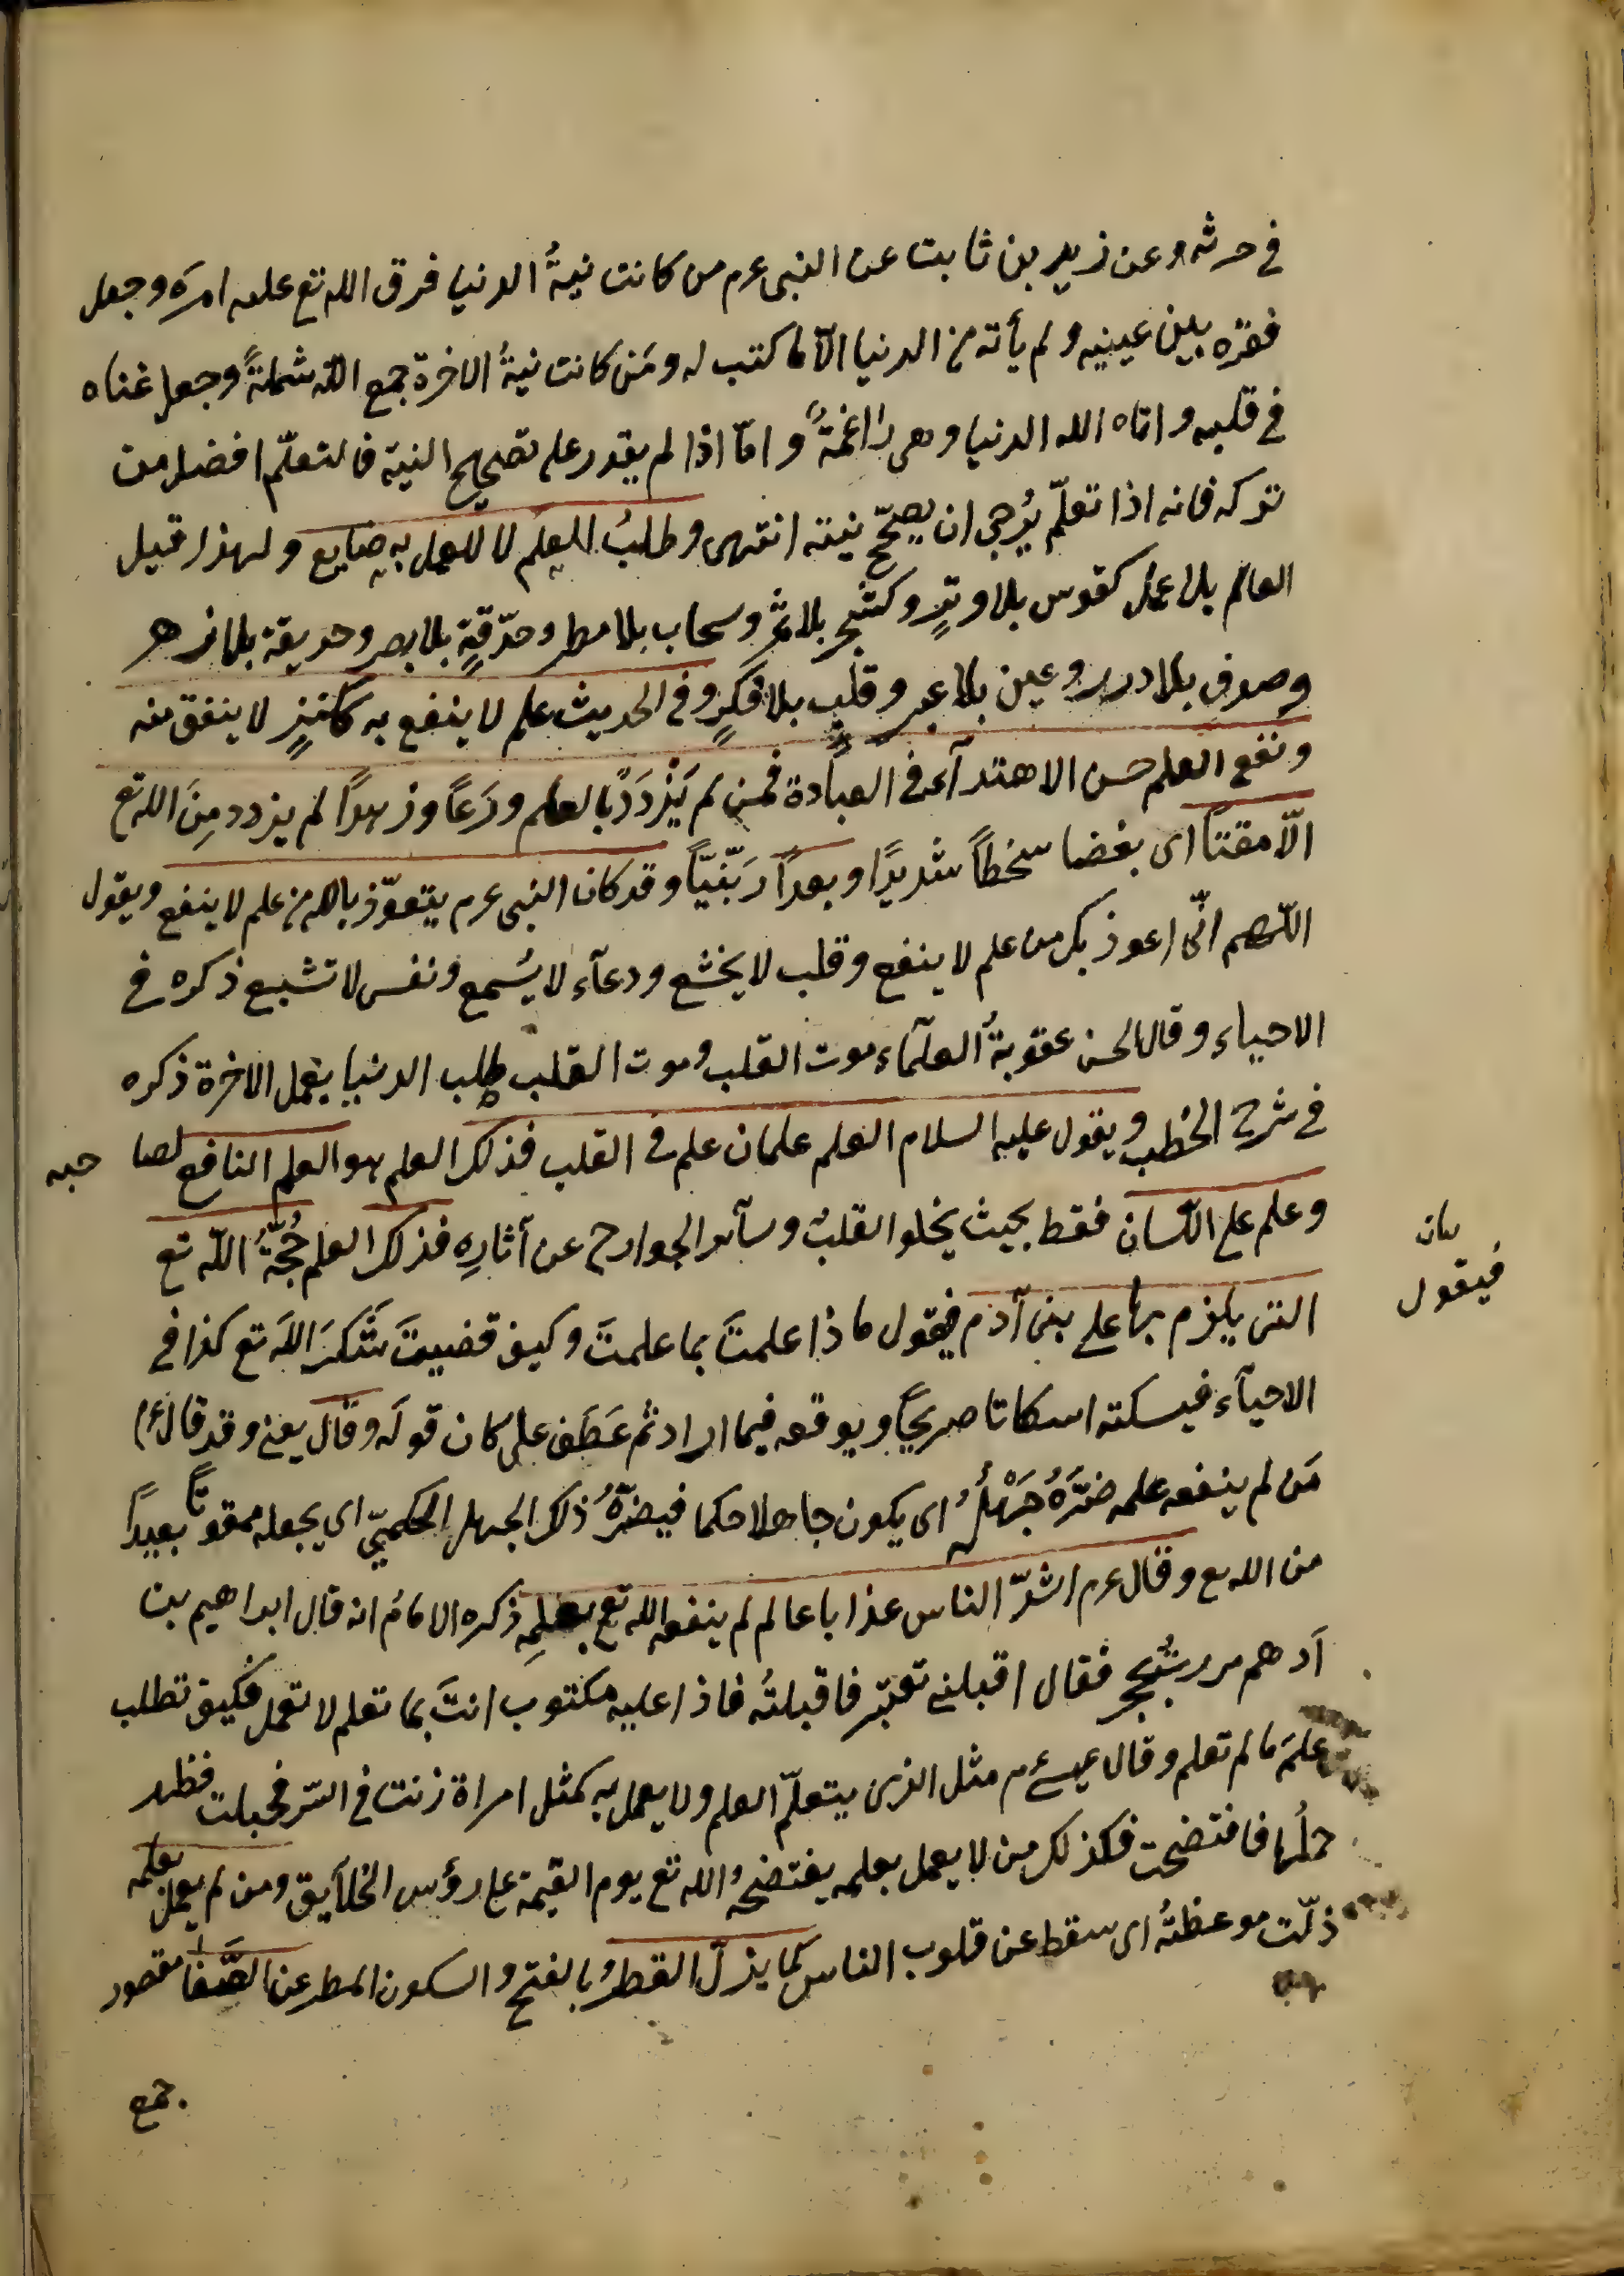 في حرثه وعن زيد بن ثابت عن النبى عم من كانت نيةُ الدنيا فرق الله تع عليه امره وجعل
فقره بين عينيه ولم يأته من الدنيا الّا ما كتب له ومَن كانت نيةُ الاخرة جمع الله شملهً وجعل غناه
في قلبه واتاه الله الدنيا وهى راغمةً وامّا اذا لم يقدر على تصحيح النية فالتعلّم افضل من
تركه فانه اذا تعلّم يُرجى ان يصحّح نيته انتهى وطلبُ العلم لا للعمل به ضايع ولهذا قيل
العالم بلا عمل كقوس بلا وترٍ وكشجر بلا ثمر وسحاب بلا مطر وحدّقةٍ بلا بصر وحديقة بلا زهر
وصوف بلا درر وعين بلا عبر وقلب بلا فكرٍ وفي الحديث علم لا ينفع به ككنزٍ لا ينفق منه
ونفع العلم حسن الاهتدآء في العبادة فمن لم يَزْدَدْ بالعلم ورَعاً وزهداً لم يزدد مِنَ الله تع
الّا مقتاً اى بغضا سخطاً شديدًا وبعداً رَبّنيّاً وقد كان النبى عم يتعوّذ بالله من علم لا ينفع ويقول
اللّهم انّى اعوذ بك من علم لا ينفع وقلب لا يخشع ودعآء لا يُسمع ونفس لا تشبع ذكره في
الاحياء وقال الحسن عقوبةُ العلمآء موت القلب وموت القلب طلب الدنيا بعمل الاخرة ذكره
في شرح الخُطب ويقول عليه السلام العلم علمان علم في القلب فذلك العلم هو العلم النافع لصا حبه
وعلم على اللّسان فقط بحيث يخلوا القلبُ وسآئر الجوارح عن آثارِه فذلك العلم حُجّةُ الله تع
بان
فيقول
التى يلزم بها على بنى آدم فيقول ماذا علمتَ بما علمتَ وكيف قضيتَ شُكرَ الله تع كذا في
الاحيآء فيسكته اسكاتا صريحًا ويوقعه فيما اراد ثم عَطَف على كان قولَه وقال يعنى وقد قال عم
مَن لم ينفعه علمه ضرَّهُ جَهْلُهُ اى يكون جاهلا حكما فيضرّهُ ذلك الجهل الحكمىّ اى يجعله ممقوتاً بعيداً
من الله تع وقال عم اشدّ الناس عذابا عالم لم ينفعه الله تع بعلمِه ذكره الامام انه قال ابراهيم بن
اَدهم مررتُ بحجر فقال اقبلنى تعتبّر فاقبلتُه فاذا عليه مكتوب انتَ بما تعلم لا تعمل فكيف تطلب
علمَ ما لم تعلم وقال عيسى عم مثل الذى يتعلّم العلم ولا يعمل به كمثل امراة زنت في السّر فحبلت فظهر
حملُها فافتضحت فكذلك من لا يعمل بعلمه يفتضحهُ الله تع يوم القيمة على رؤس الخلآيق ومن لم يعمل بعلمه
ذلّت موعظتُه اى سقط عن قلوب الناس كما يزلّ القطرُ بالفتح والسكون المطر عن الصَّفا مقصور
جمع